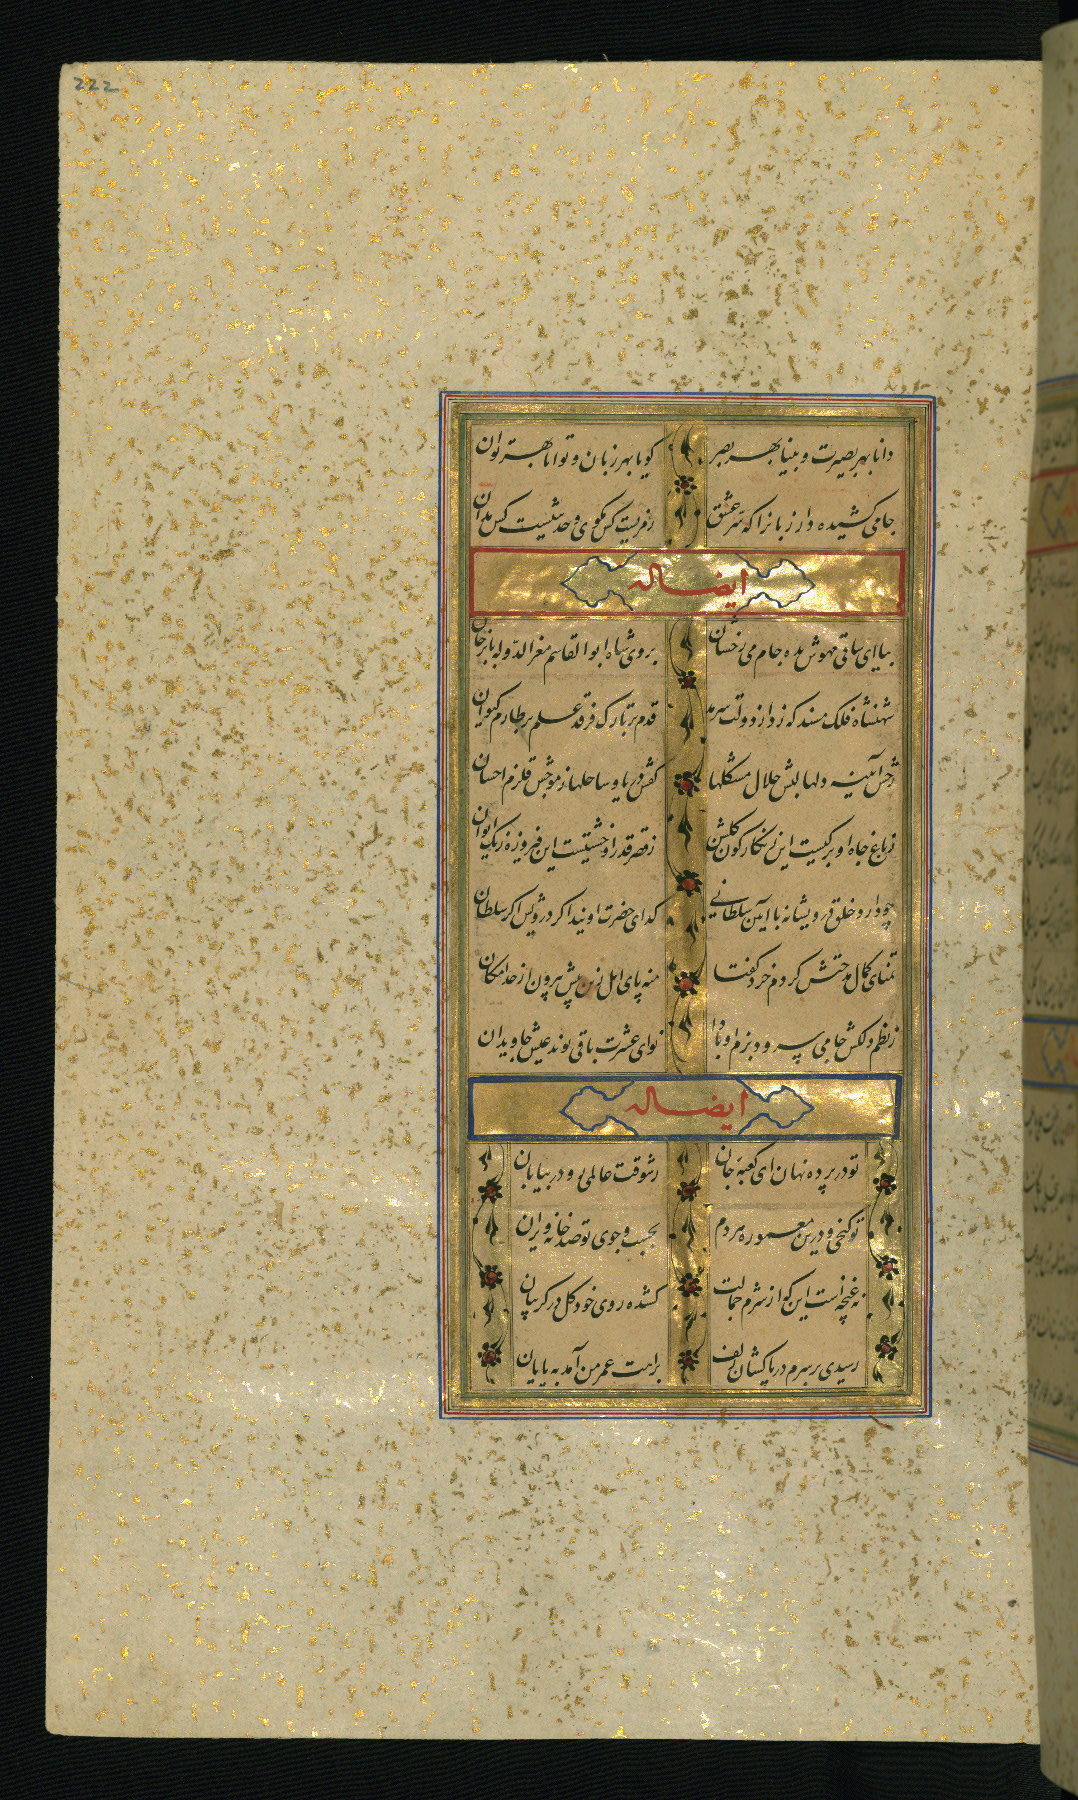 222
دانا بهر بصیرت و بینا بهر بصر گویا بهر زبان و توانا بهر توان
جامی کشیده دار زبان را که سر عشق رمزیست کس مگوی و حدیثیست کس مدان
ایضا له
بیا ای ساقی مهوش بده جام می رخشان بروی شاه ابوالقاسم معز الدوله بابر خان
شهنشاه فلک مسند که زد از دولت سرمد قدم بر تارک فرقد علم بر طارم کیوان
رخش آیینه دلها لبش حلال مشکلها کفش دریای و ساحلها ز موجش قلزم احسان
ز باغ جاه او برگیست این زنگارگون گلشن ز قصر قدر او خشتیست این فیروزه رنگ ایوان
چو دارد خلق درویشانه با آیین سلطانی گدای حضرت اویند اگر درویش اگر سلطان
تمنای کمال مدحتش کردم خرد گفتا منه پای امل زین بیش بیرون از حد امکان
ز نظم دلکش جامی سرود بزم او بادا نوای عشرت باقی نوید عیش جاویدان
ایضا له
تو در پرده نهان ای کعبه جان ز شوقت عالمی رو در بیابان
تو گنجی و درین معموره مردم بجست و جوی تو صد خانه ویران
نه غنچه است این که از شرم جمالت کشیده روی خود گل در گریبان
رسیدی بر سرم در پا کشان زلف براهت عمر من آمد به پایان